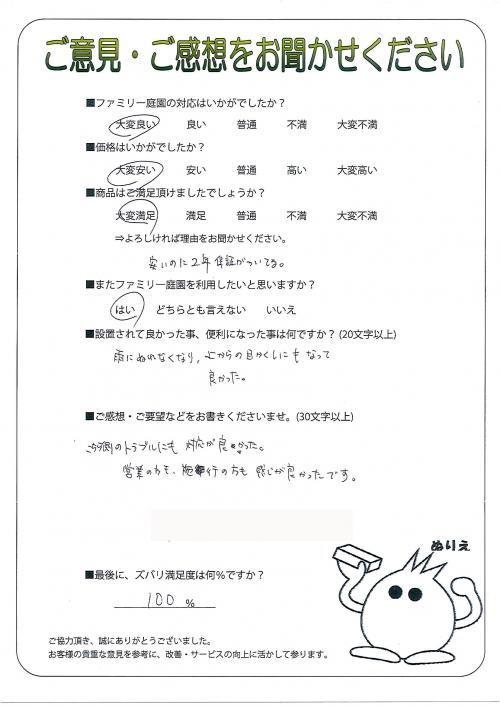 ご意見・ご感想をお聞かせください
■ファミリー庭園の対応はいかがでしたか?
大変良い 良い 普通 不満 大変不満
■価格はいかがでしたか?
大変安い 安い 普通 高い 大変高い
■商品はご満足頂けましたでしょうか?
大変満足 満足 普通 不満 大変不満
⇒よろしければ理由をお聞かせください。
安いのに2年保証がついてる。
■またファミリー庭園を利用したいと思いますか?
はい どちらとも言えない いいえ
■設置されて良かった事、便利になった事は何ですか?(20文字以上)
雨にぬれなくなり、上からの目かくしにもなって
良かった。
■ご感想・ご要望などをお書きくださいませ。(30文字以上)
こちら側のトラブルにも対応が良かった。
営業の方も、施行の方も感じが良かったです。
ぬりえ
■最後に、ズバリ満足度は何%ですか?
100 %
ご協力頂き、誠にありがとうございました。
お客様の貴重な意見を参考に、改善・サービスの向上に活かして参ります。